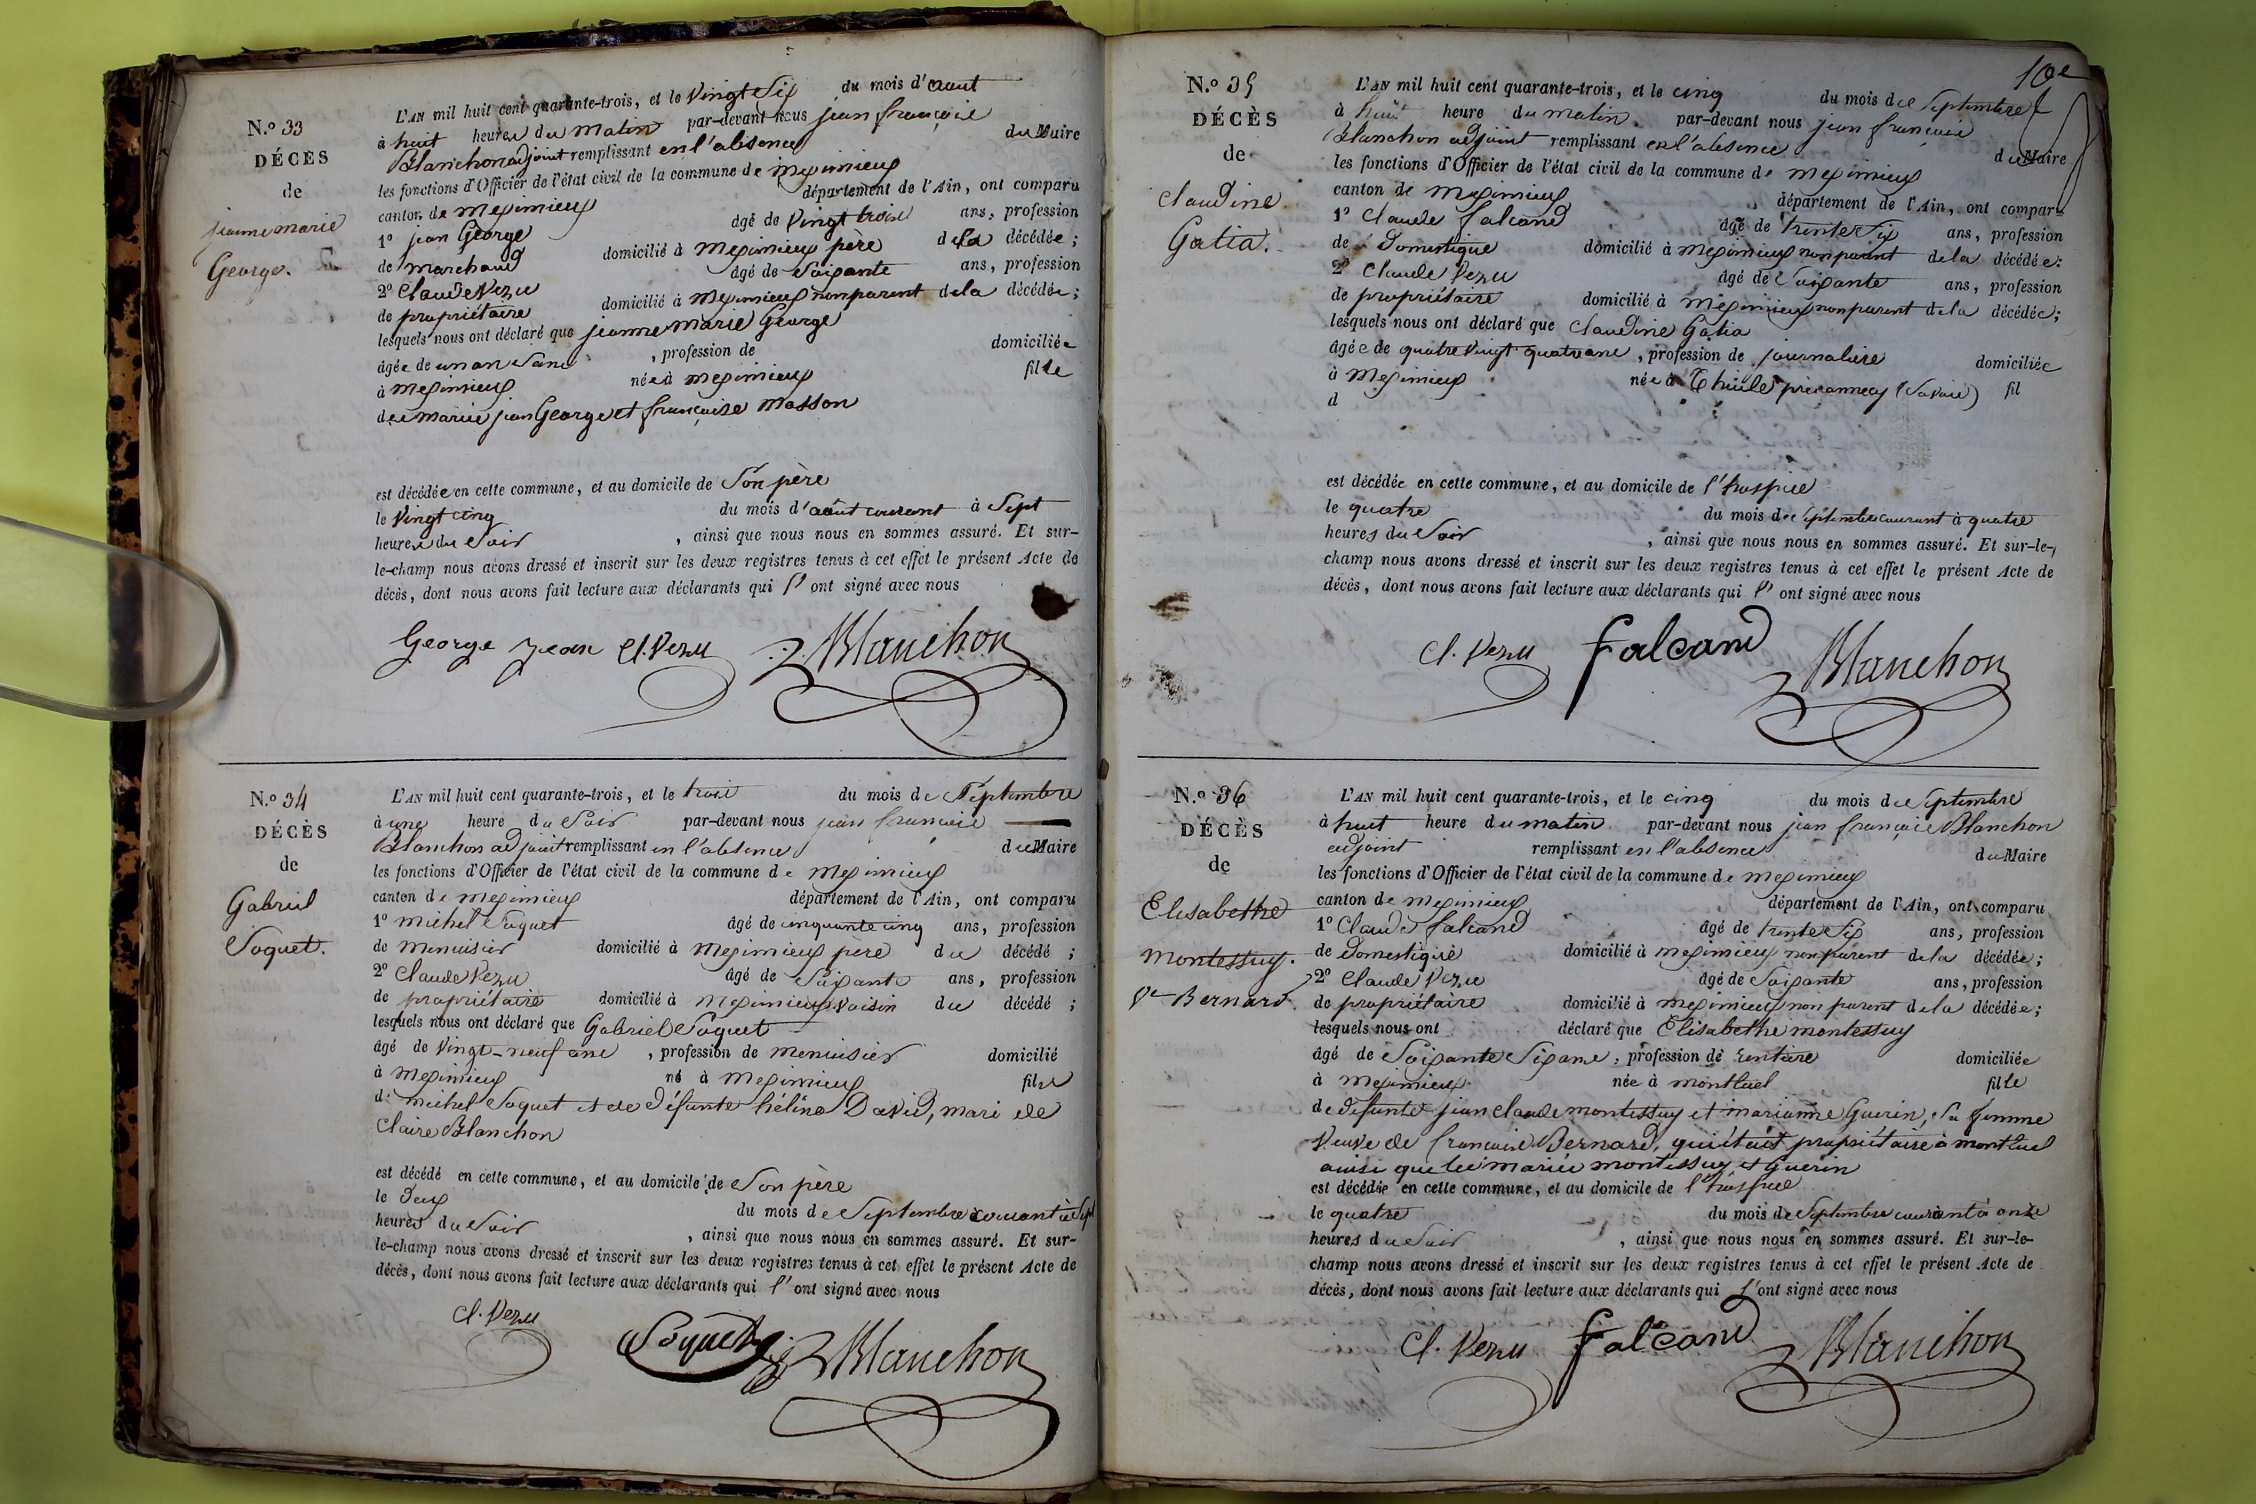 N.º 33
DÉCÈS
de
jeanne marie
George.
L'AN mil huit cent quarante-trois, et le Vingt Six du mois d'aout
à huit heures du matin par-devant nous jean françois
Blanchon adjoint remplissant en l'absence du Maire
les fonctions d'Officier de l'état civil de la commune de meximieux
canton de meximieux département de l'Ain, ont comparu
1º jean George âgé de Vingt trois ans, profession
de marchand domicilié à meximieux père de la décédée;
2º Claude Vezu âgé de Soixante ans, profession
de propriétaire domicilié à meximieux non parent de la décédée;
lesquels nous ont déclaré que jeanne marie George
âgée de un an Sans , profession de domiciliée
à meximieux née à meximieux fille
des mariés jean George et françoise Masson
est décédée en cette commune, et au domicile de Son père
le Vingt cinq du mois d'août courant à Sept
heures du Soir , ainsi que nous nous en sommes assuré. Et sur-
le-champ nous avons dressé et inscrit sur les deux registres tenus à cet effet le présent Acte de
décès, dont nous avons fait lecture aux déclarants qui l'ont signé avec nous
George jean Cl. Vezu Blanchon
N.º 34
DÉCÈS
de
Gabriel
Soquet.
L'AN mil huit cent quarante-trois, et le trois du mois de Septembre
à une heure du Soir par-devant nous jean françois
Blanchon adjoint remplissant en l'absence du Maire
les fonctions d'Officier de l'état civil de la commune de meximieux
canton de meximieux département de l'Ain, ont comparu
1º michel Soquet âgé de cinquante cinq ans, profession
de menuisier domicilié à meximieux père du décédé ;
2º Claude Vezu âgé de Soixante ans, profession
de propriétaire domicilié à meximieux Voisin du décédé ;
lesquels nous ont déclaré que Gabriel Soquet
âgé de Vingt-neuf ans , profession de menuisier domicilié
à meximieux né à meximieux fils
de michel Soquet et de défunte hélène David, mari de
Claire Blanchon
est décédé en cette commune, et au domicile de Son père
le deux du mois de Septembre courant à Sept
heures du Soir , ainsi que nous nous en sommes assuré. Et sur-
le-champ nous avons dressé et inscrit sur les deux registres tenus à cet effet le présent Acte de
décès, dont nous avons fait lecture aux déclarants qui l'ont signé avec nous
Cl. Vezu Soquet Blanchon
10e
N.º 35
DÉCÈS
de
Claudine
Gatia.
L'AN mil huit cent quarante-trois, et le cinq du mois de Septembre
à huit heure du matin par-devant nous jean françois
Blanchon adjoint remplissant en l'absence du Maire
les fonctions d'Officier de l'état civil de la commune de meximieux
canton de meximieux , département de l'Ain, ont comparu
1º Claude falcand âgé de trente Six ans, profession
de Domestique domicilié à meximieux non parent de la décédée;
2º Claude Vezu âgé de Soixante ans, profession
de propriétaire domicilié à meximieux non parent de la décédée;
lesquels nous ont déclaré que Claudine Gatia
âgée de quatre vingt quatre ans , profession de journalière domiciliée
à meximieux née à près annecy (Savoie) fil
d
est décédée en cette commune, et au domicile de l'hospice
le quatre du mois de Septembre courant à quatre
heures du Soir , ainsi que nous nous en sommes assuré. Et sur-le-
champ nous avons dressé et inscrit sur les deux registres tenus à cet effet le présent Acte de
décès, dont nous avons fait lecture aux déclarants qui l'ont signé avec nous
Cl. Vezu falcand Blanchon
N.º 36
DÉCÈS
de
Elisabethe
Montessuy.
Ve Bernard
L'AN mil huit cent quarante-trois, et le cinq du mois de Septembre
à huit heure du matin par-devant nous jean françois Blanchon
adjoint remplissant en l'absence du Maire
les fonctions d'Officier de l'état civil de la commune de meximieux
canton de meximieux département de l'Ain, ont comparu
1º Claude falcand âgé de trente Six ans, profession
de Domestique domicilié à meximieux non parent de la décédée;
2º Claude Vezu âgé de Soixante ans, profession
de propriétaire domicilié à meximieux non parent de la décédée;
lesquels nous ont déclaré que Elisabethe montessuy
âgé de Soixante Six ans, profession de rentière domiciliée
à meximieux née à montluel fille
de défunts jean claude montessuy et marianne Guerin, Sa femme
Veuve de françois Bernard, qui était propriétaire à montluel
ainsi que les mariés montessuy et Guerin
est décédée en cette commune, et au domicile de l'hospice
le quatre du mois de Septembre courant à onze
heures du Soir , ainsi que nous nous en sommes assuré. Et sur-le-
champ nous avons dressé et inscrit sur les deux registres tenus à cet effet le présent Acte de
décès, dont nous avons fait lecture aux déclarants qui l'ont signé avec nous
Cl. Vezu falcand Blanchon